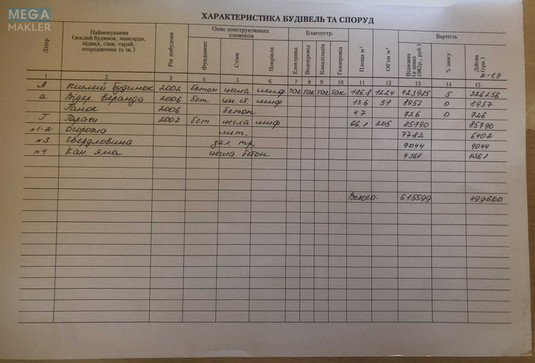 MEGA
MAKLER
ХАРАКТЕРИСТИКА БУДІВЕЛЬ ТА СПОРУД
Літер
Найменування
(жилий будинок, мансарда,
підвал, сіни, сарай,
огородження та ін.)
Рік побудови
Опис конструктивних
елементів
Фундамент
Стіни
Покрівля
Благоустр.
Електрика
Водопровід
Каналізація
Газопровід
Площа м²
Об'єм м³
Вартість
% зносу
Дійсна
(грн.)
1 2 3 4 5 6 7 8 9 10 11 12 13 14 15
А Жилий будинок 2002 бетон цегла шиф так так так так
а Відкр. веранда 2006 бет шиф 13.6 51 1957 0 1957
Ганок 2006 бетон 4.7 726 0 726
Г Гараж 2002 бет цегла шиф 66.1 205 85790 85790
№1-2 Огорожа мет. 7782 6402
№3 Свердловина тр. 9044 9044
№4 Кам яма цегла бетон 4361 4361
Всього: 615599 499600